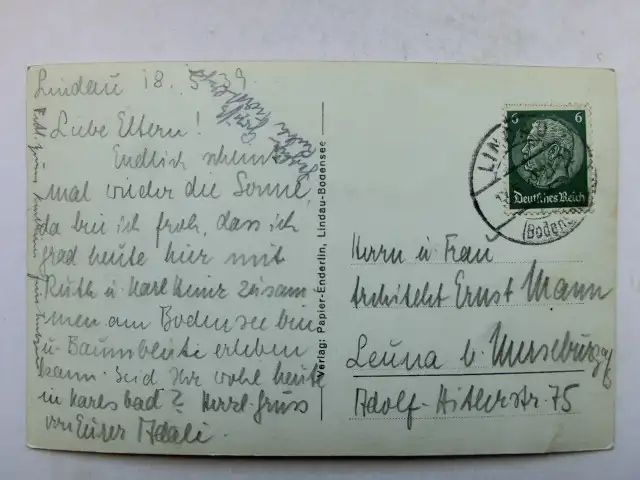 Lindau 18. 5. 39
Liebe Eltern!
Endlich scheint
mal wieder die Sonne,
da bin ich froh, dass ich
grad heute hier mit
Ruth u. Karl Heinz zusam
men am Bodensee bin
u. Baumblüte erleben
kann. Seid Ihr wohl heute
in Karlsbad? Herzl. Gruss
von Eurer Adali.
Verlag: Papier-Enderlin, Lindau-Bodensee
6 6
Deutsches Reich
LIN
(Boden
Herrn u. Frau
Architekt Ernst Mann
Leuna b. Merseburg
Adolf-Hitlerstr. 75